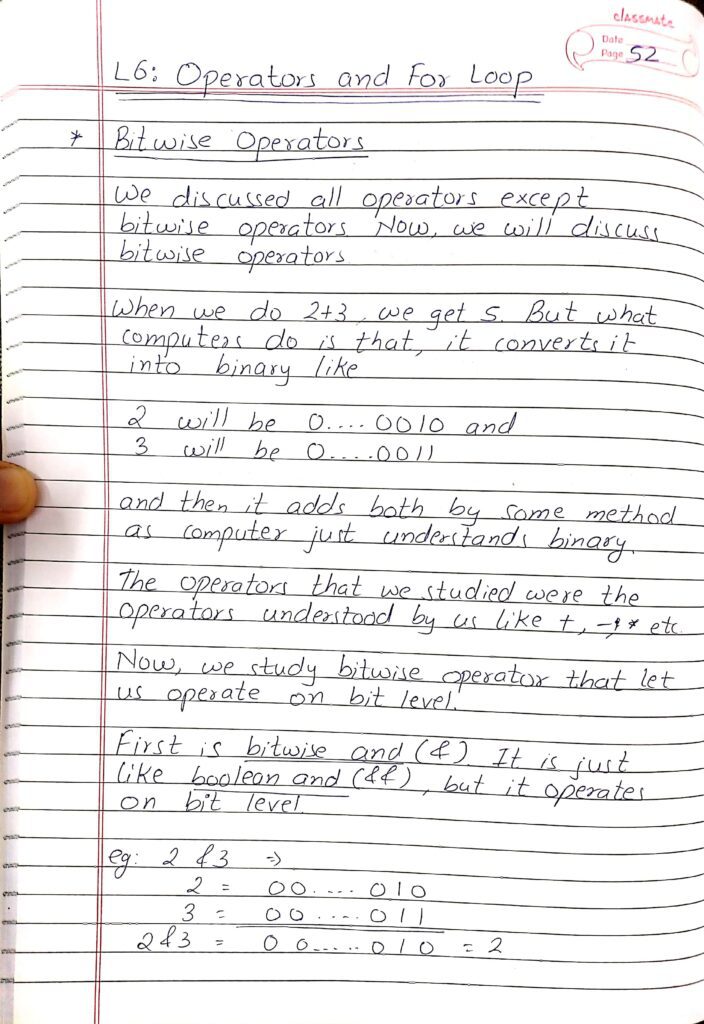 classmate
Date
Page 52
L6: Operators and For Loop
* Bitwise Operators
We discussed all operators except
bitwise operators Now, we will discuss
bitwise operators
When we do 2+3, we get 5. But what
computers do is that, it converts it
into binary like
2 will be 0....0010 and
3 will be 0....0011
and then it adds both by some method
as computer just understands binary.
The operators that we studied were the
operators understood by us like +, -, * etc.
Now, we study bitwise operator that let
us operate on bit level.
First is bitwise and (&) It is just
like boolean and (&&), but it operates
on bit level
eg: 2 & 3 =>
2 = 00.....010
3 = 00.....011
2&3 = 00.....010 = 2